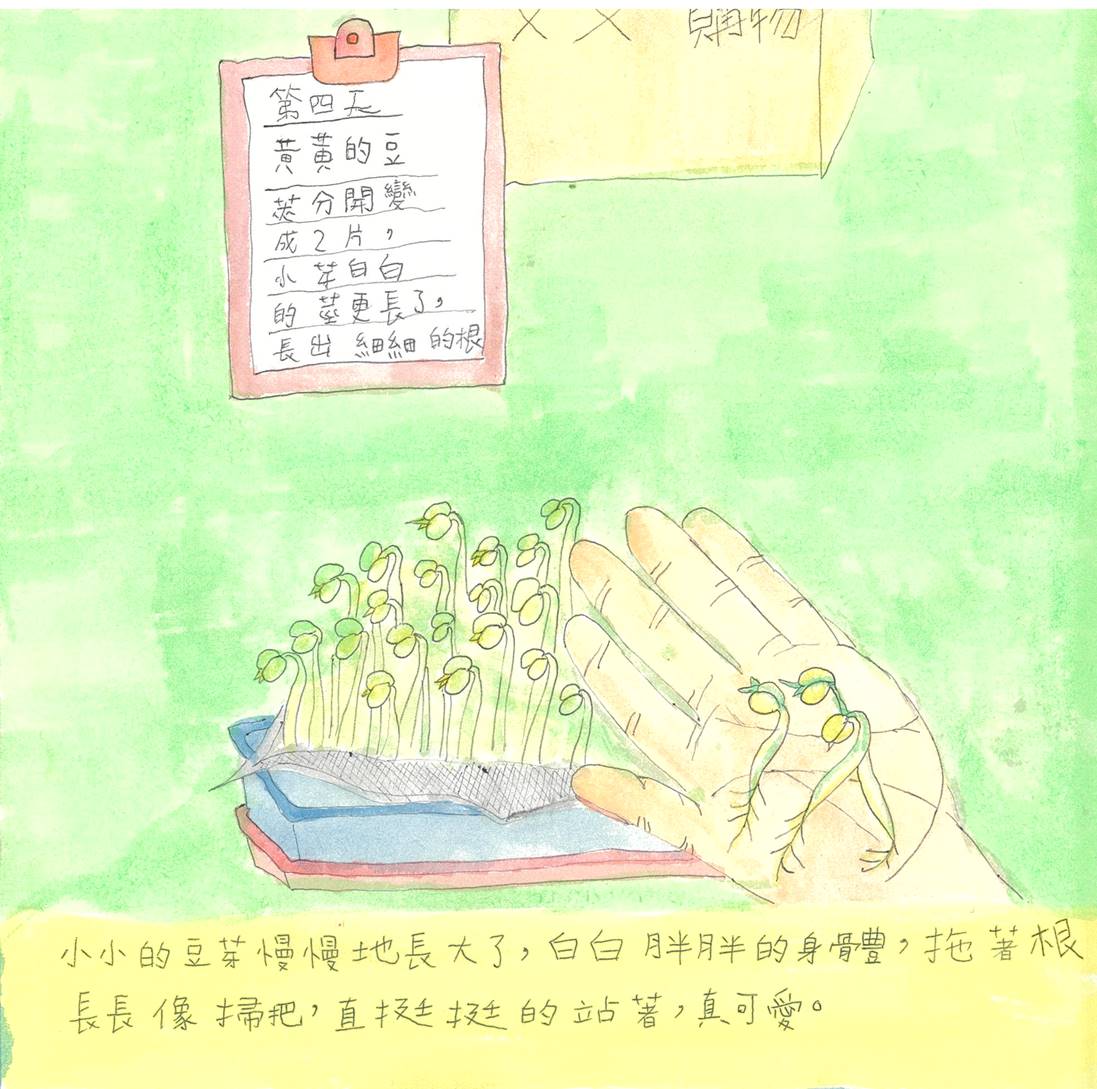 ㄨㄨ 購物
第四天
黃黃的豆
莢分開變
成2片，
小芽白白
的莖更長了，
長出細細的根
小小的豆芽慢慢地長大了，白白胖胖的身體，拖著根
長長像掃把，直挺挺的站著，真可愛。